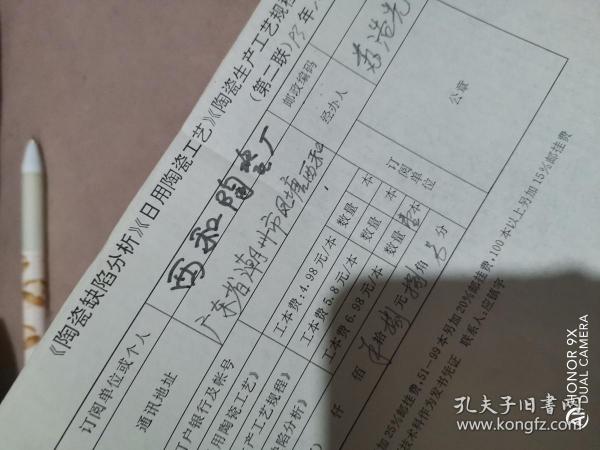 《陶瓷缺陷分析》《日用陶瓷工艺》《陶瓷生产工艺规程
(第二联) 年
订阅单位或个人 西和陶瓷厂 邮政编码
通讯地址 广东省潮州市风塘西和 经办人
户银行及帐号
用陶瓷工艺》 工本费:4.98元/本 数量 本
产工艺规程》 工本费5.8元/本 数量 本
缺陷分析》 工本费6.98元/本 数量 本
订阅单位
公章
仟 佰 拾 元 角 分
加25%邮挂费;51-99本另加20%邮挂费;100本以上另加15%邮挂费
技术科作为发书凭证 联系人:应镇学
HONOR 9X
AI DUAL CAMERA
孔夫子旧书网
www.kongfz.com